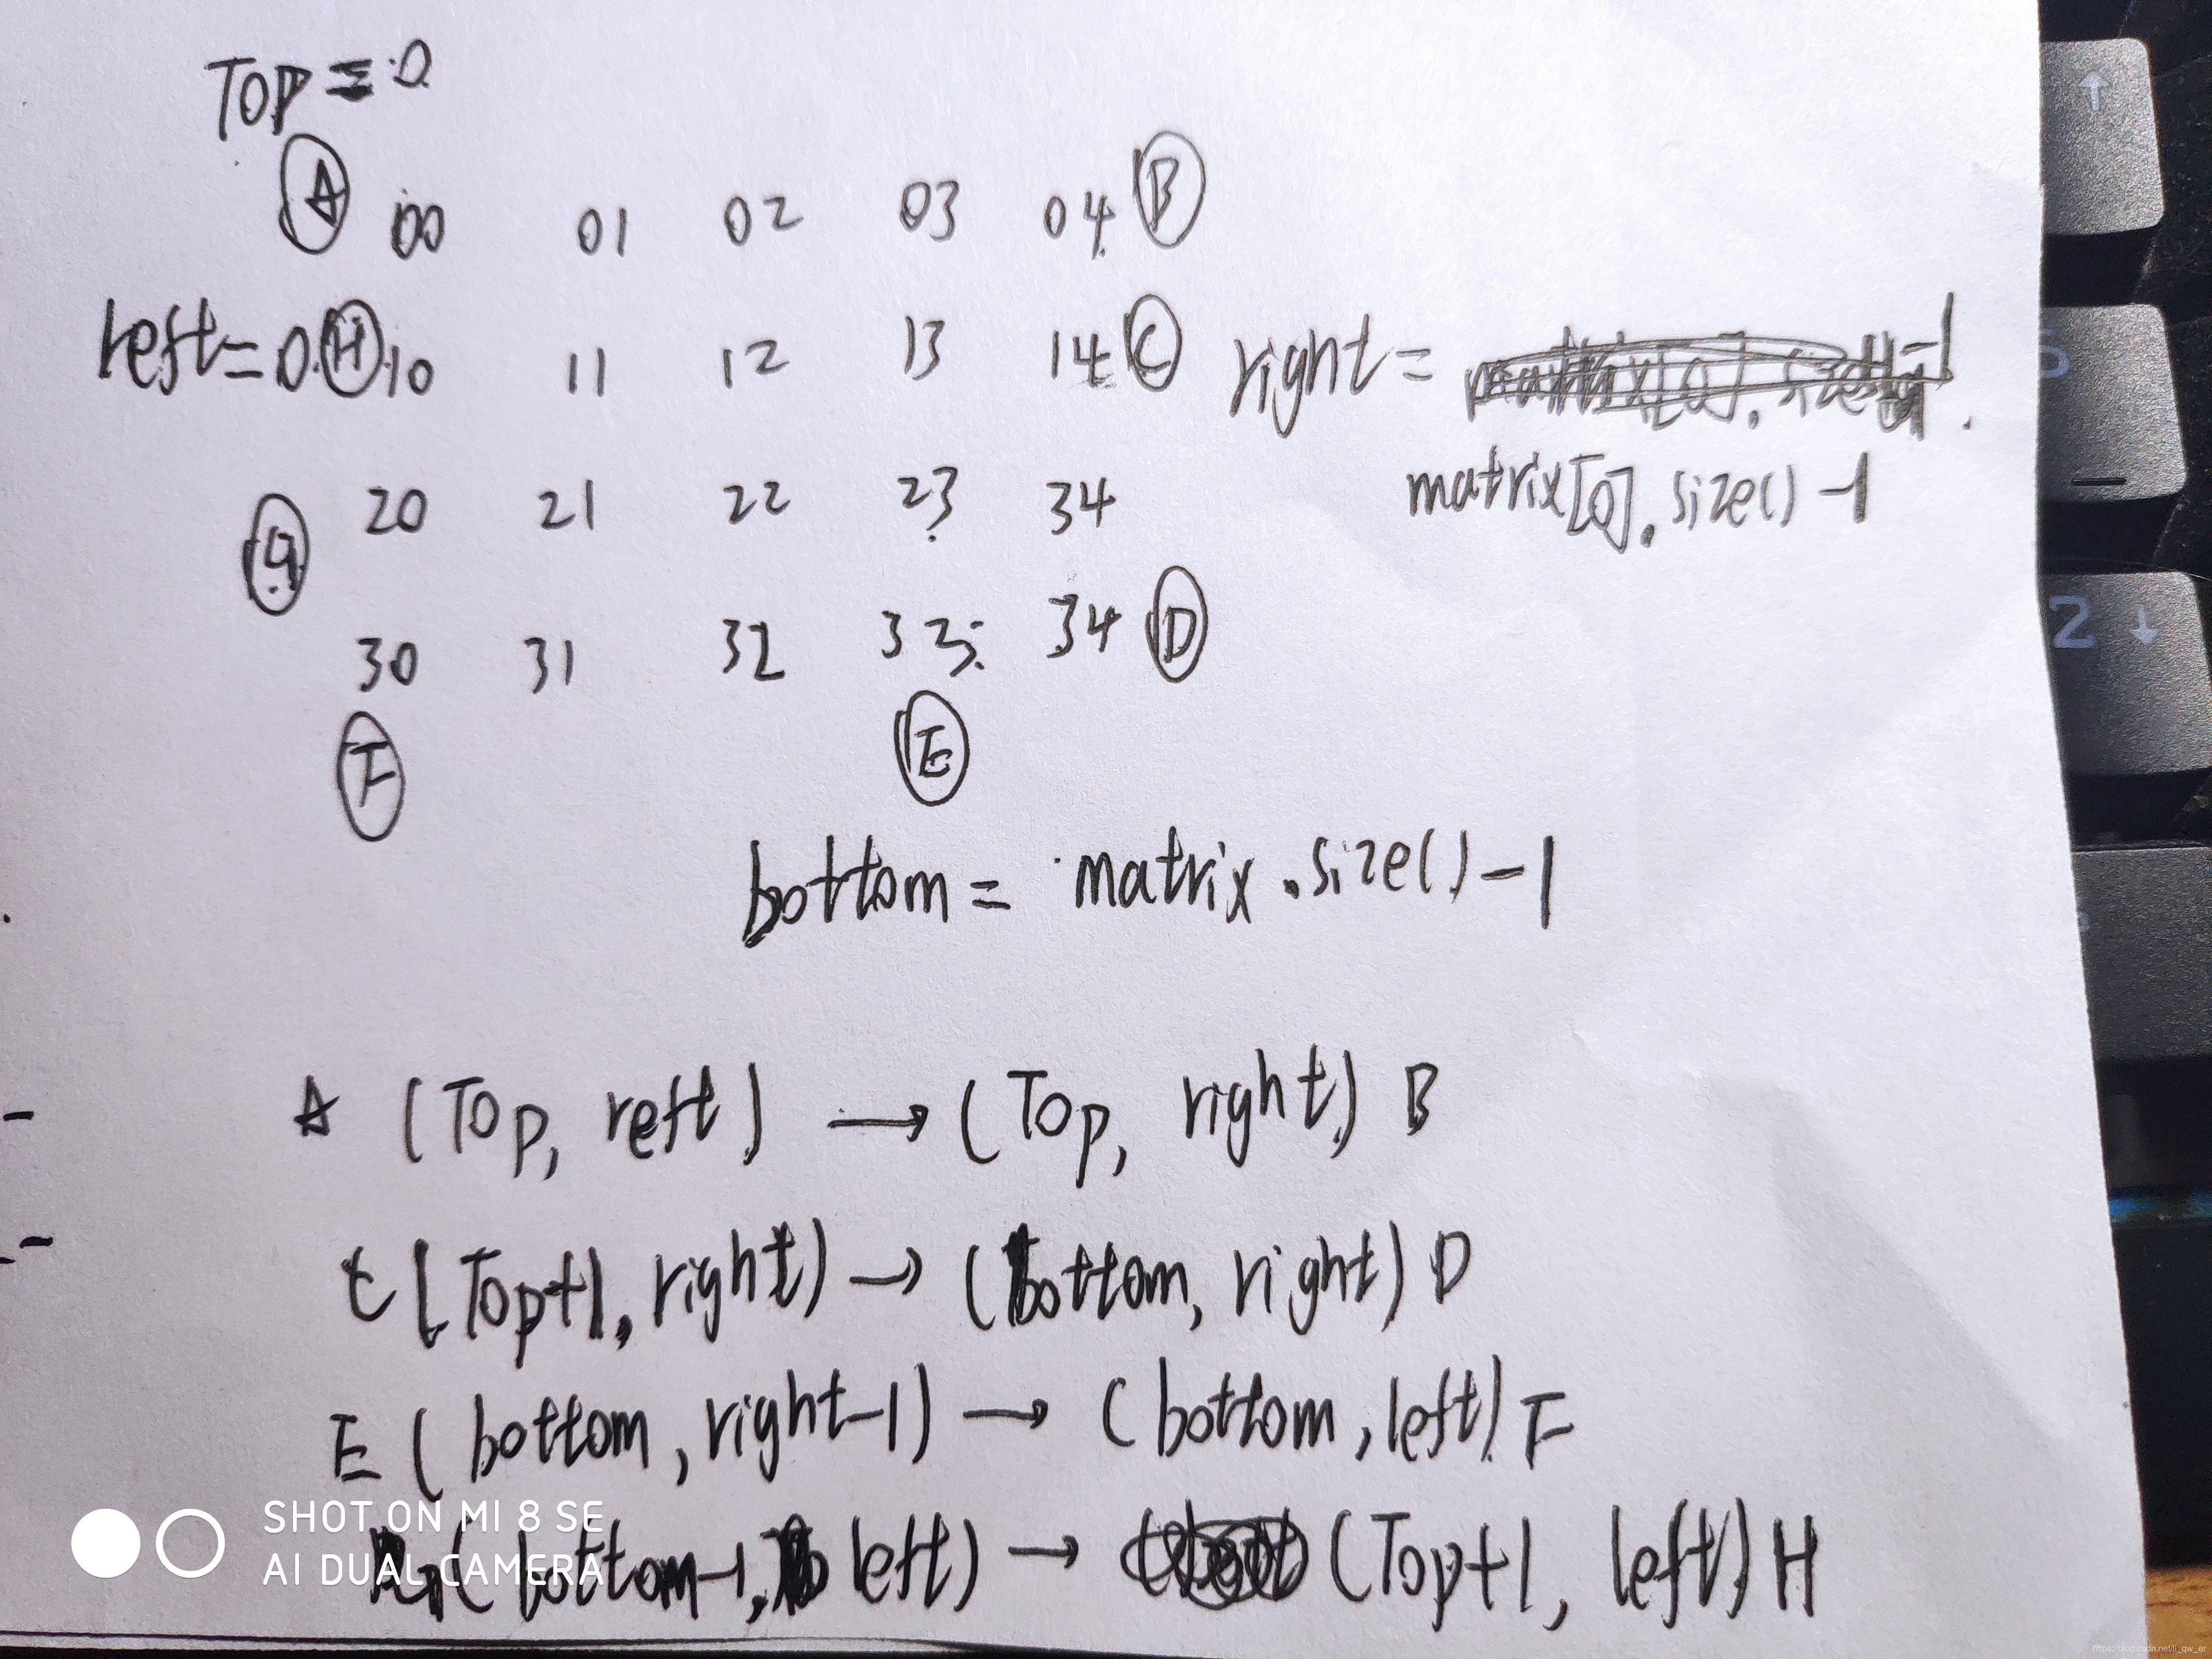 Top = 0
A 00 01 02 03 04 B
left = 0 H 10 11 12 13 14 C right =
matrix[0].size() -1
20 21 22 23 34
G
30 31 32 33 34 D
F E
bottom = matrix.size() -1
A (Top, left) → (Top, right) B
C (Top+1, right) → (bottom, right) D
E (bottom, right-1) → (bottom, left) F
(bottom-1, left) → (Top+1, left) H
SHOT ON MI 8 SE
AI DUAL CAMERA
https://blog.csdn.net/li_qw_er